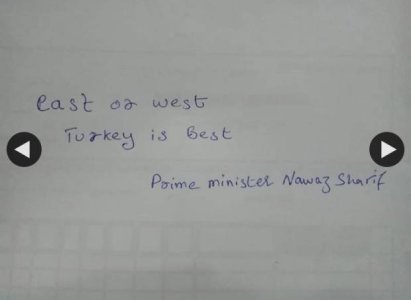 east or west
Turkey is best
Prime minister Nawaz Sharif